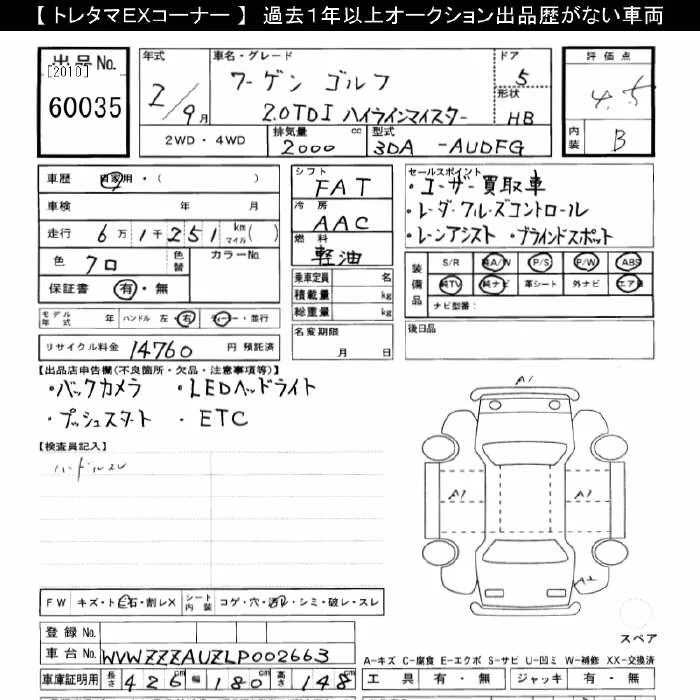 【 トレタマEXコーナー 】 過去1年以上オークション出品歴がない車両
出品No. [2010] 60035
年式 2/9月
車名・グレード ワーゲン ゴルフ 2.0TDI ハイラインマイスター
ドア 5
形状 HB
評価点 4.5
内装 B
2WD・4WD
排気量 2000 cc
型式 3DA -AUDFG
車歴 自家用・( )
車検 年 月
走行 6万1千251 km マイル( )
色 クロ 色替 カラーNo.
保証書 有・無
モデル年式 年 ハンドル 左・右 ディーラー・並行
リサイクル料金 14760 円 預託済
シフト FAT
冷房 AAC
燃料 軽油
乗車定員 名
積載量 kg
総重量 kg
名変期限 月 日
セールスポイント
・ユーザー買取車
・レーダークルーズコントロール
・レーンアシスト ・ブラインドスポット
装備品 S/R 純A/W P/S P/W ABS
純TV 純ナビ 革シート 外ナビ エアB
ナビ型番:
後日品
【出品店申告欄(不良箇所・欠品・注意事項等)】
・バックカメラ ・LEDヘッドライト
・プッシュスタート ・ETC
【検査員記入】
ハンドルスレ
A1
A1 A1
A2
FW キズ・ト石・割レX シート内装 コゲ・穴・汚レ・シミ・破レ・スレ
スペア
登録No.
車台No. WVWZZZAUZLP002663
A-キズ C-腐食 E-エクボ S-サビ U-凹ミ W-補修 XX-交換済
車庫証明用 長さ 426 cm 幅 180 cm 高さ 148 cm
工具 有・無 ジャッキ 有・無